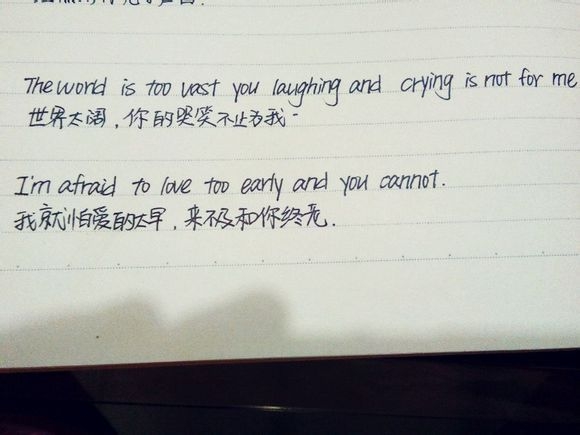 The world is too vast you laughing and crying is not for me
世界太阔,你的哭笑不止为我
I'm afraid to love too early and you cannot.
我就怕爱的太早,来不及和你终老.